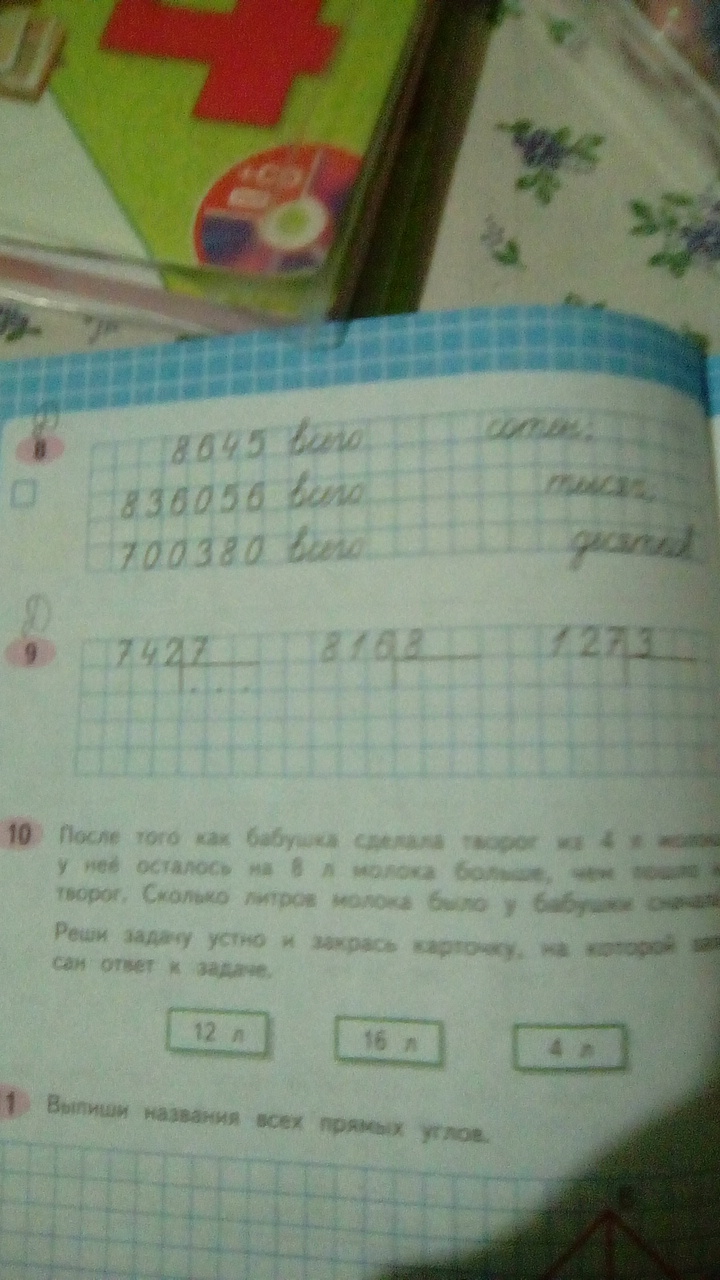 4
+CD
8
8645 всего сотен;
836056 всего тысяч;
700380 всего десятков
9
742 7 816 8 127 3
10 После того как бабушка сделала творог из 4 л
у неё осталось на 8 л молока больше, чем пошло
творог. Сколько литров молока было у бабушки
Реши задачу устно и закрась карточку, на которой
сан ответ к задаче.
12 л 16 л 4 л
1 Выпиши названия всех прямых углов.